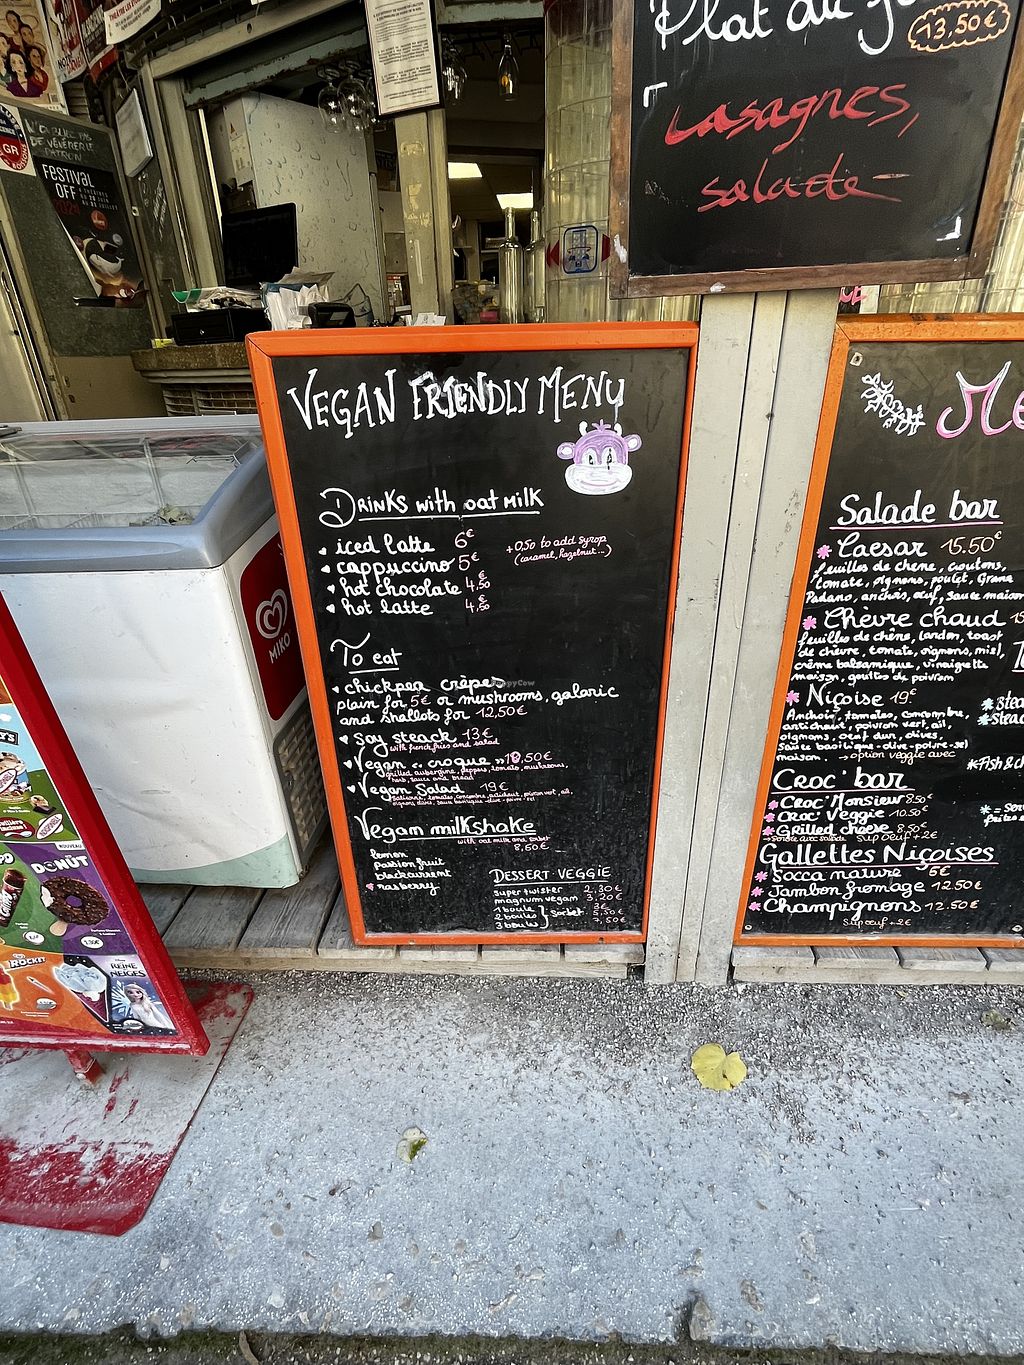 Plat du
13,50€
Lasagnes,
salade
N'OUBLIE PAS
DE VÉNÉRER LE
PATRON
GR
FESTIVAL
OFF
2024
VEGAN FRIENDLY MENU
DRINKS with oat milk
iced latte 6€
cappuccino 5€
hot chocolate 4,50€
hot latte 4,50€
+0,50 to add syrop
(caramel, hazelnut...)
To eat
chickpea crêpes
HappyCow
plain for 5€ or mushrooms, galaric
and shallots for 12,50€
Soy steack 13€
with french fries and salad
Vegan "croque" 10,50€
grilled aubergine, peppers, tomato, mushrooms,
herb, sauce and bread
Vegan Salad 19€
Vegan milkshake
with oat milk and sorbet
8,60€
lemon
passion fruit
blackcurrent
rasberry
DESSERT VEGGIE
super twister 2.30€
magnum vegan 3.20€
1 boule 3€
2 boules } Sorbet 5,50€
3 boules 7,50€
Me
Salade bar
Caesar 15.50€
feuilles de chêne, croutons,
tomate, oignons, poulet, Grana
Padano, anchois, œuf, sauce maison
Chèvre chaud 15
feuilles de chêne, lardon, toast
de chèvre, tomate, oignons, miel,
crème balsamique, vinaigrette
maison, gouttes de poivron
Niçoise 19€
Anchois, tomates, concombre,
artichaut, poivron vert, ail,
oignons, oeuf dur, olives,
sauce basilique-olive-poivre-sel
maison. → option veggie avec
Croc' bar
Croc' Monsieur 8.50€
Croc' Veggie 10.50€
Grilled cheese 8.50€
→ Servie avec salade Sup oeuf +2€
Gallettes Niçoises
Socca nature 5€
Jambon fromage 12.50€
Champignons 12.50€
Sup œuf +2€
*Stea
*Steac
*Fish & ch
MIKO
NOUVEAU
DONUT
ROCKET
REINE
NEIGES